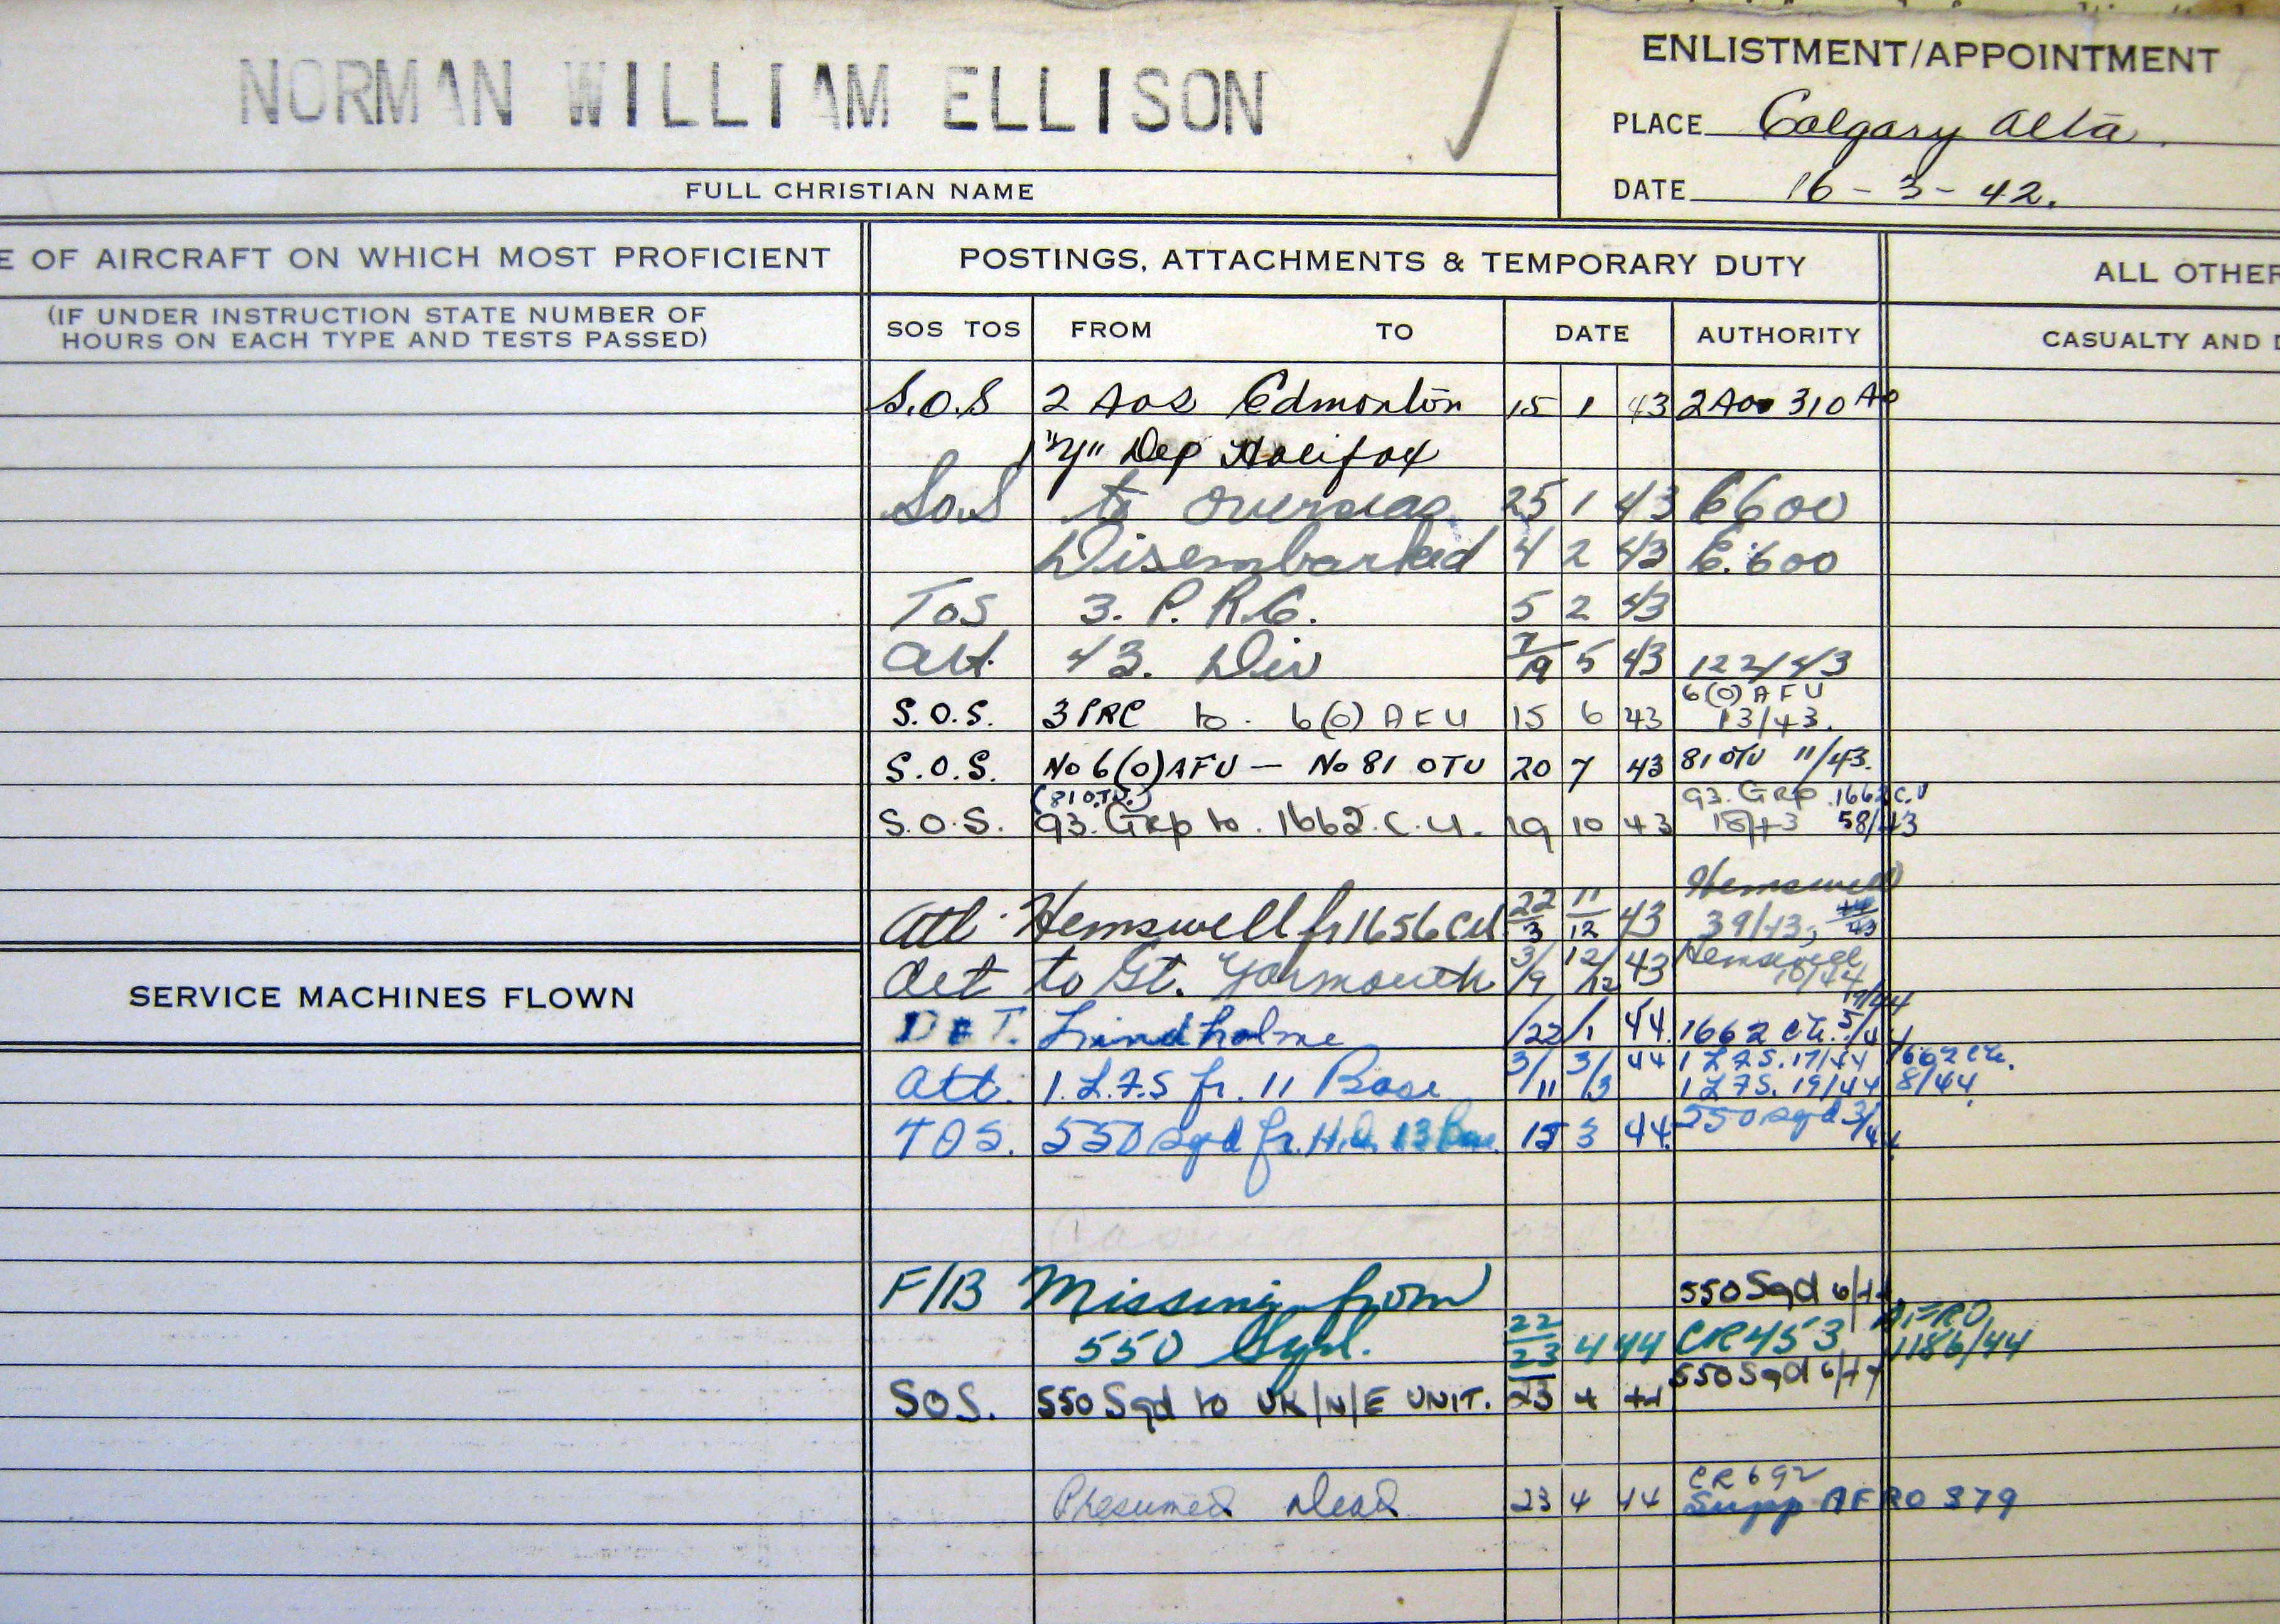 NORMAN WILLIAM ELLISON
FULL CHRISTIAN NAME
ENLISTMENT/APPOINTMENT
PLACE Calgary Alta.
DATE 16-3-42.
E OF AIRCRAFT ON WHICH MOST PROFICIENT
(IF UNDER INSTRUCTION STATE NUMBER OF
HOURS ON EACH TYPE AND TESTS PASSED)
POSTINGS, ATTACHMENTS & TEMPORARY DUTY
ALL OTHER
SOS TOS FROM TO DATE AUTHORITY
CASUALTY AND
S.O.S 2 AOS Edmonton 15 1 43 2 AOS 310
"Y" Dep Halifax
S.O.S to overseas 25 1 43 E600
Disembarked 4 2 43 E.600
TOS 3. P.R.C. 5 2 43
Att. 43. Div 7/19 5 43 122/43
S.O.S. 3 PRC to. 6(O) AFU 15 6 43 6(O) AFU 13/43.
S.O.S. No 6(O) AFU — No 81 OTU 20 7 43 81 OTU 11/43.
(81 O.T.U.)
S.O.S. 93. Grp to. 1662. C.U. 19 10 43 93. Grp 18/43 1662 C.U 58/43
Att Hemswell fr 1656 CU 22/3 11/12 43 Hemswell 39/43,
Det to Gt. Yarmouth 3/9 12/12 43 Hemswell 10/44
DET. Lindholme /22/1 44. 1662 CU. 5/44
Att. 1. L.F.S fr. 11 Base 3/11 3/3 44 1 L.F.S. 17/44 1662 CU.
1 LFS. 19/44 8/44.
TOS. 550 Sqd fr. H.Q. 13 Base. 15 3 44. 550 Sqd 3/44
SERVICE MACHINES FLOWN
F/B Missing from 550 Sqd 6/44
550 Sqd. 22/23 4 44 CR 453 AFRO 1186/44
SOS. 550 Sqd to UK/N/E UNIT. 23 4 44 550 Sqd 6/44
Presumed Dead 23 4 44 CR 692
Supp AFRO 379